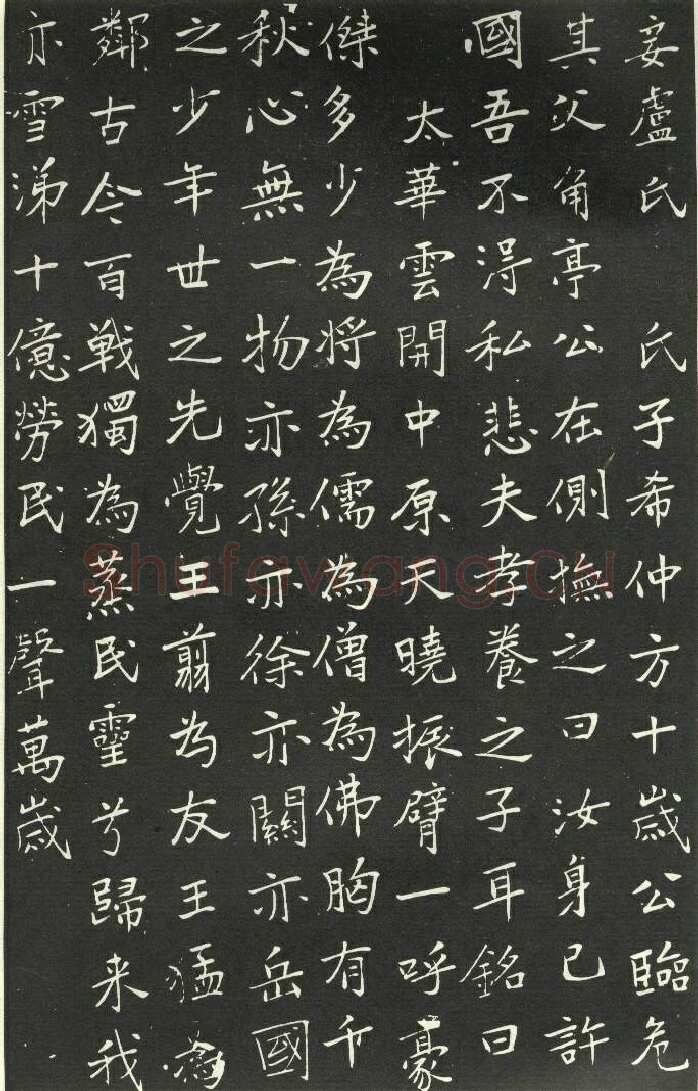 妾盧氏　氏子希仲方十歲公臨危
其父角亭公在側撫之曰汝身已許
國吾不得私悲夫孝養之子耳銘曰
太華雲開中原天曉振臂一呼豪
傑多少為將為儒為僧為佛胸有千
秋心無一物亦孫亦徐亦關亦岳國
之少年世之先覺王翦為友王猛為
鄰古今百戰獨為蒸民靈兮歸来我
亦雪涕十億勞民一聲萬歲
Shufawang.CN